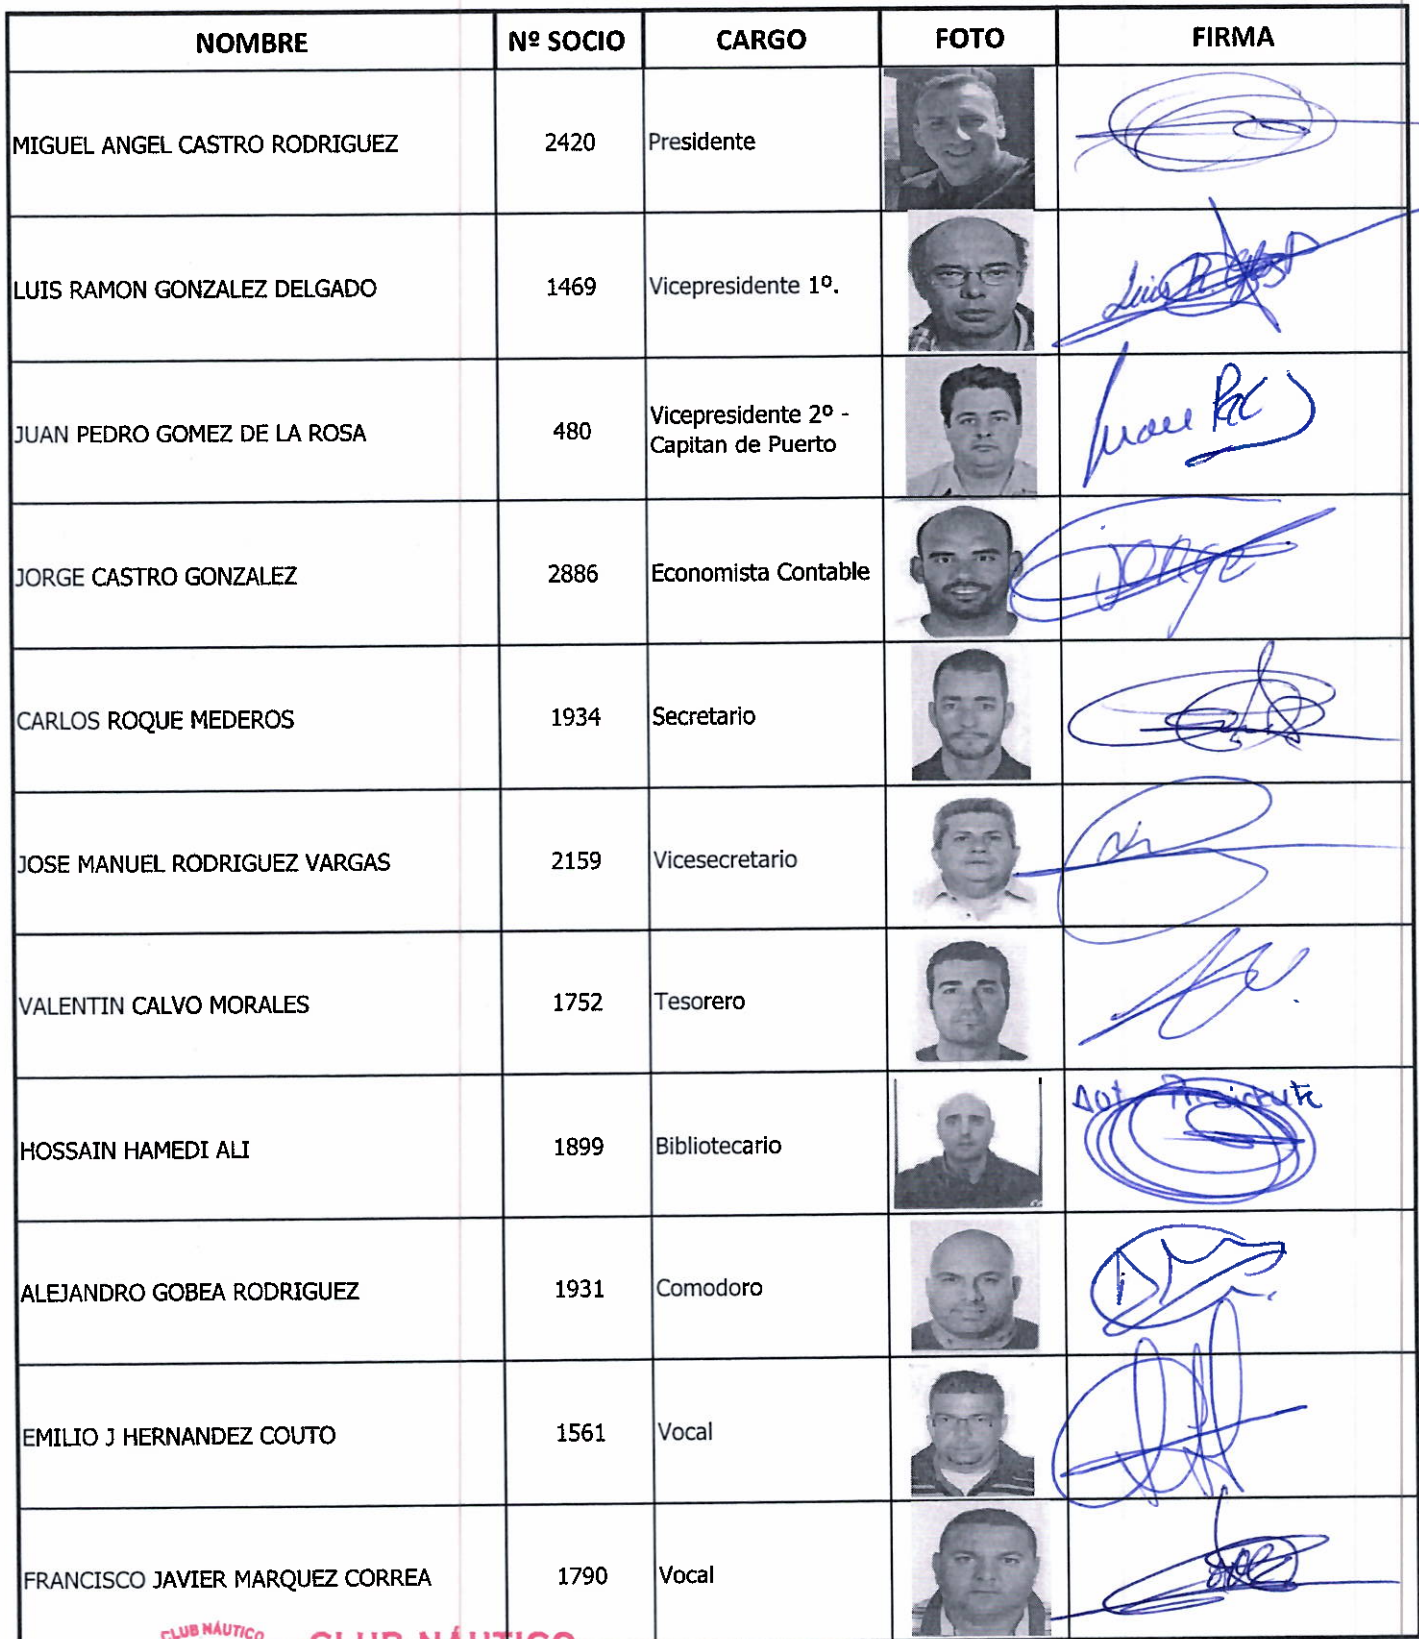 NOMBRE Nº SOCIO CARGO FOTO FIRMA
MIGUEL ANGEL CASTRO RODRIGUEZ 2420 Presidente
LUIS RAMON GONZALEZ DELGADO 1469 Vicepresidente 1º.
Luis R.
JUAN PEDRO GOMEZ DE LA ROSA 480 Vicepresidente 2º -
Capitan de Puerto
JORGE CASTRO GONZALEZ 2886 Economista Contable
JORGE
CARLOS ROQUE MEDEROS 1934 Secretario
JOSE MANUEL RODRIGUEZ VARGAS 2159 Vicesecretario
VALENTIN CALVO MORALES 1752 Tesorero
HOSSAIN HAMEDI ALI 1899 Bibliotecario
Presidente
ALEJANDRO GOBEA RODRIGUEZ 1931 Comodoro
EMILIO J HERNANDEZ COUTO 1561 Vocal
FRANCISCO JAVIER MARQUEZ CORREA 1790 Vocal
CLUB NÁUTICO CLUB NÁUTICO